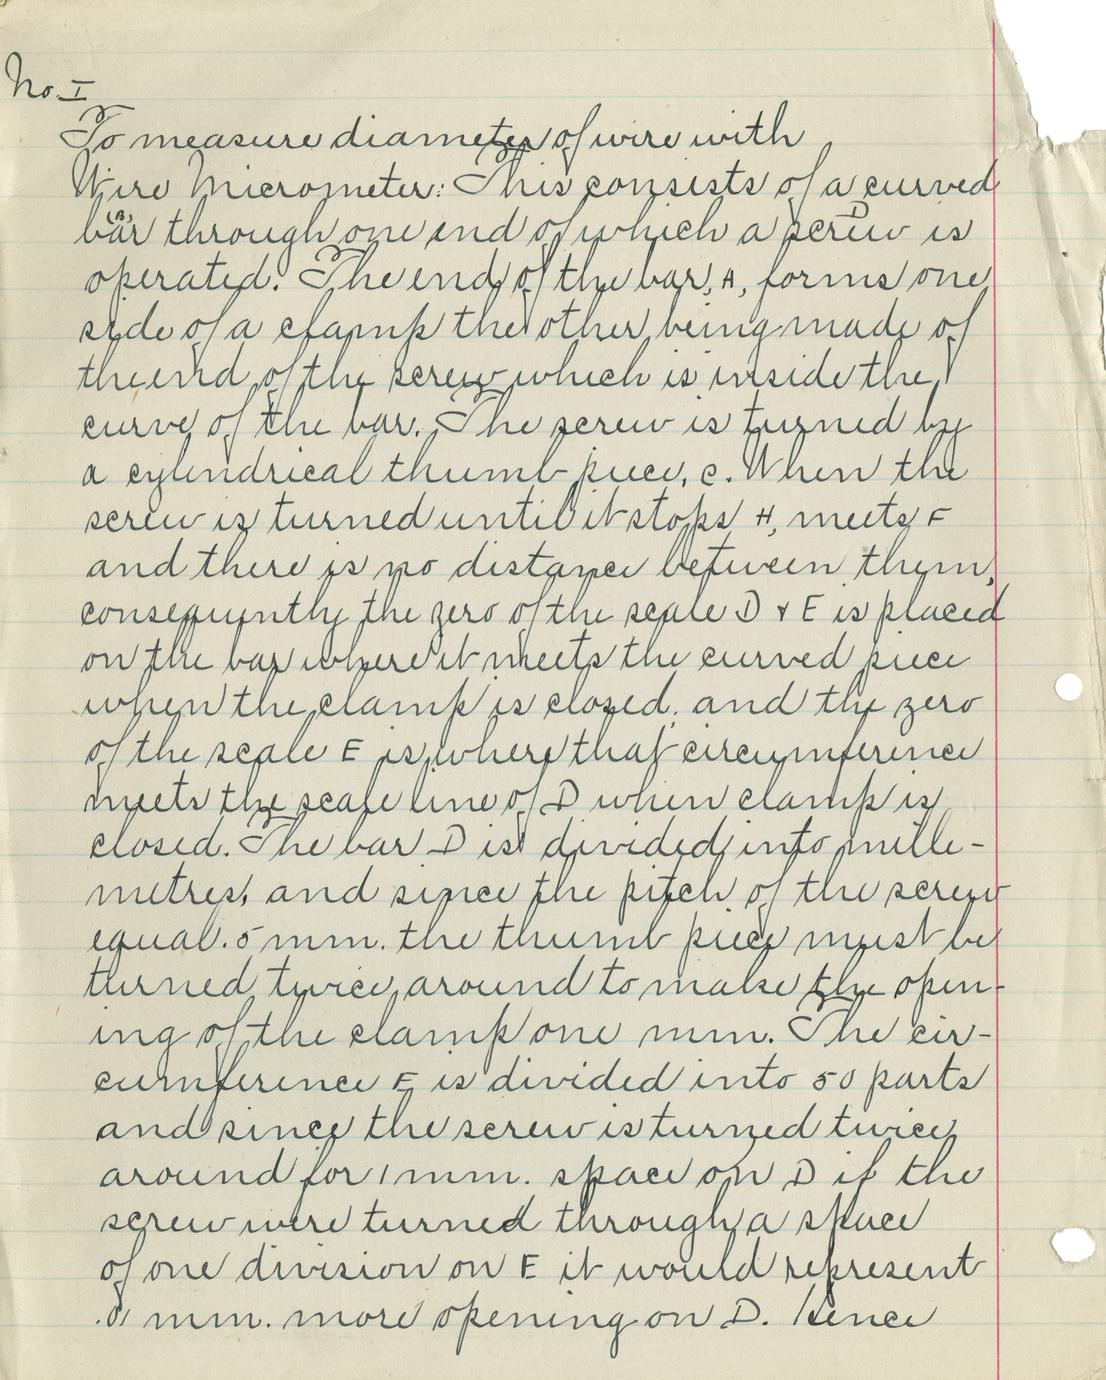 No. I
To measure diameter of wire with
Wire Micrometer: This consists of a curved
bar (A) through one end of which a screw D is
operated. The end of the bar, A, forms one
side of a clamp the other being made of
the end of the screw which is inside the
curve of the bar. The screw is turned by
a cylindrical thumb piece, c. When the
screw is turned until it stops A, meets F
and there is no distance between them,
consequently the zero of the scale D & E is placed
on the bar where it meets the curved piece
when the clamp is closed. and the zero
of the scale E is where that circumference
meets the scale line of D when clamp is
closed. The bar D is divided into mille-
metres, and since the pitch of the screw
equal .5 mm. the thumb piece must be
turned twice around to make the open-
ing of the clamp one mm. The cir-
cumference E is divided into 50 parts
and since the screw is turned twice
around for 1 mm. space on D if the
screw were turned through a space
of one division on E it would represent
mm. more opening on D. Hence